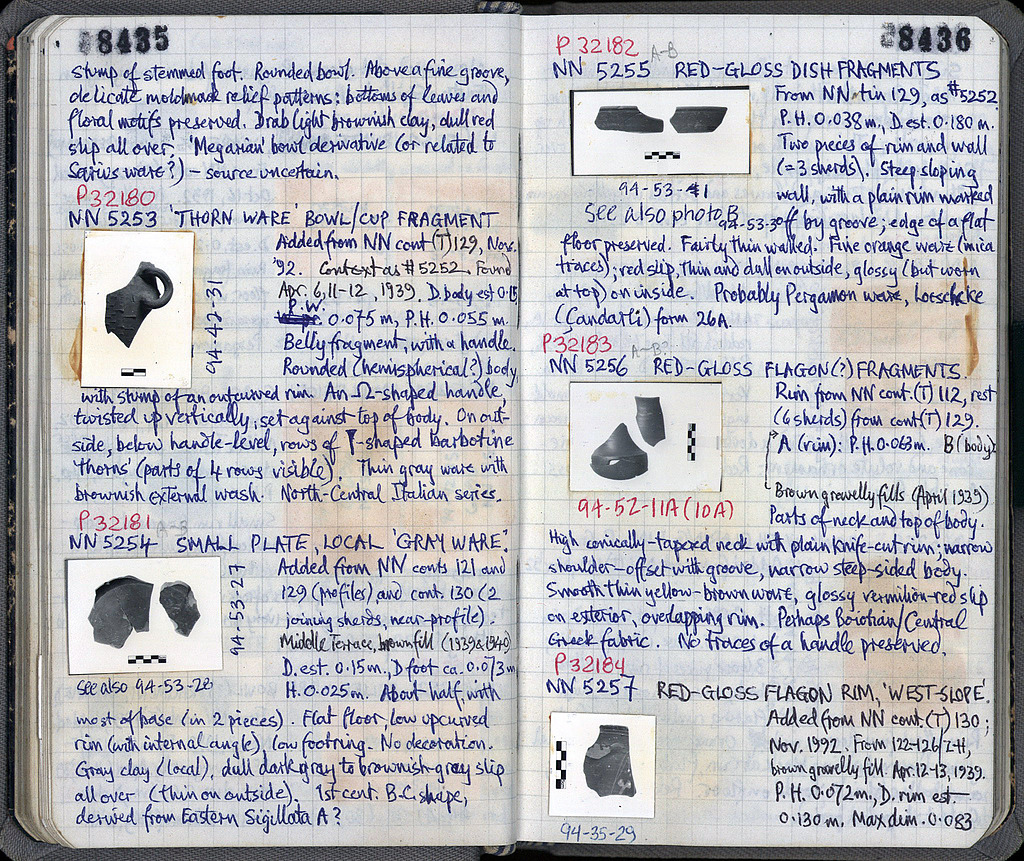 8435
stump of stemmed foot. Rounded bowl. Above a fine groove,
delicate moldmade relief patterns: bottoms of leaves and
floral motifs preserved. Drab light brownish clay, dull red
slip all over. 'Megarian' bowl derivative (or related to
Sarius ware?) – source uncertain.
P 32180
NN 5253 'THORN WARE' BOWL/CUP FRAGMENT
Added from NN cont (T) 129, Nov.
'92. Context as #5252. Found
Apr. 6, 11-12, 1939. D. body est 0.15
P.W. 0.075 m, P.H. 0.055 m.
Belly fragment, with a handle.
Rounded (hemispherical?) body
94-42-31
with stump of an outcurved rim. An Ω-shaped handle,
twisted up vertically, set against top of body. On out-
side, below handle-level, rows of Y-shaped barbotine
'thorns' (parts of 4 rows visible). Thin gray ware with
brownish external wash. North-Central Italian series.
P 32181 A-B
NN 5254 SMALL PLATE, LOCAL 'GRAY WARE'.
Added from NN conts 121 and
129 (profiles) and cont. 130 (2
joining sherds, near-profile).
Middle Terrace, brown fill (1939 & 1940)
D. est. 0.15 m, D foot ca. 0.073 m
H. 0.025 m. About half, with
94-53-27
see also 94-53-28
most of base (in 2 pieces). Flat floor, low upcurved
rim (with internal angle), low footring. No decoration.
Gray clay (local), dull dark gray to brownish-gray slip
all over (thin on outside). 1st cent. B.C. shape,
derived from Eastern Sigillata A?
8436
P 32182 A-B
NN 5255 RED-GLOSS DISH FRAGMENTS
From NN tin 129, as #5252
P.H. 0.038 m., D. est. 0.180 m.
Two pieces of rim and wall
(=3 sherds). Steep sloping
wall, with a plain rim marked
94-53-1
See also photo B
94-53-3
off by groove; edge of a flat
floor preserved. Fairly thin walled. Fine orange ware (mica
traces); red slip, thin and dull on outside, glossy (but worn
at top) on inside. Probably Pergamon ware, Loeschcke
(Çandarli) form 26A.
P 32183 A-B?
NN 5256 RED-GLOSS FLAGON(?) FRAGMENTS.
Rim from NN cont (T) 112, rest
(6 sherds) from cont (T) 129.
A (rim): P.H. 0.063 m. B (body)
Brown gravelly fills (April 1939)
Parts of neck and top of body.
94-52-11A (10A)
High conically-tapered neck with plain knife-cut rim; narrow
shoulder-offset with groove, narrow steep-sided body.
Smooth thin yellow-brown ware, glossy vermilion-red slip
on exterior, overlapping rim. Perhaps Boiotian/Central
Greek fabric. No traces of a handle preserved.
P 32184
NN 5257 RED-GLOSS FLAGON RIM, 'WEST-SLOPE'.
Added from NN cont. (T) 130;
Nov. 1992. From 122-126/
brown gravelly fill. Apr. 12-13, 1939.
P.H. 0.072 m., D. rim est.
0.130 m. Max dim. 0.083
94-35-29